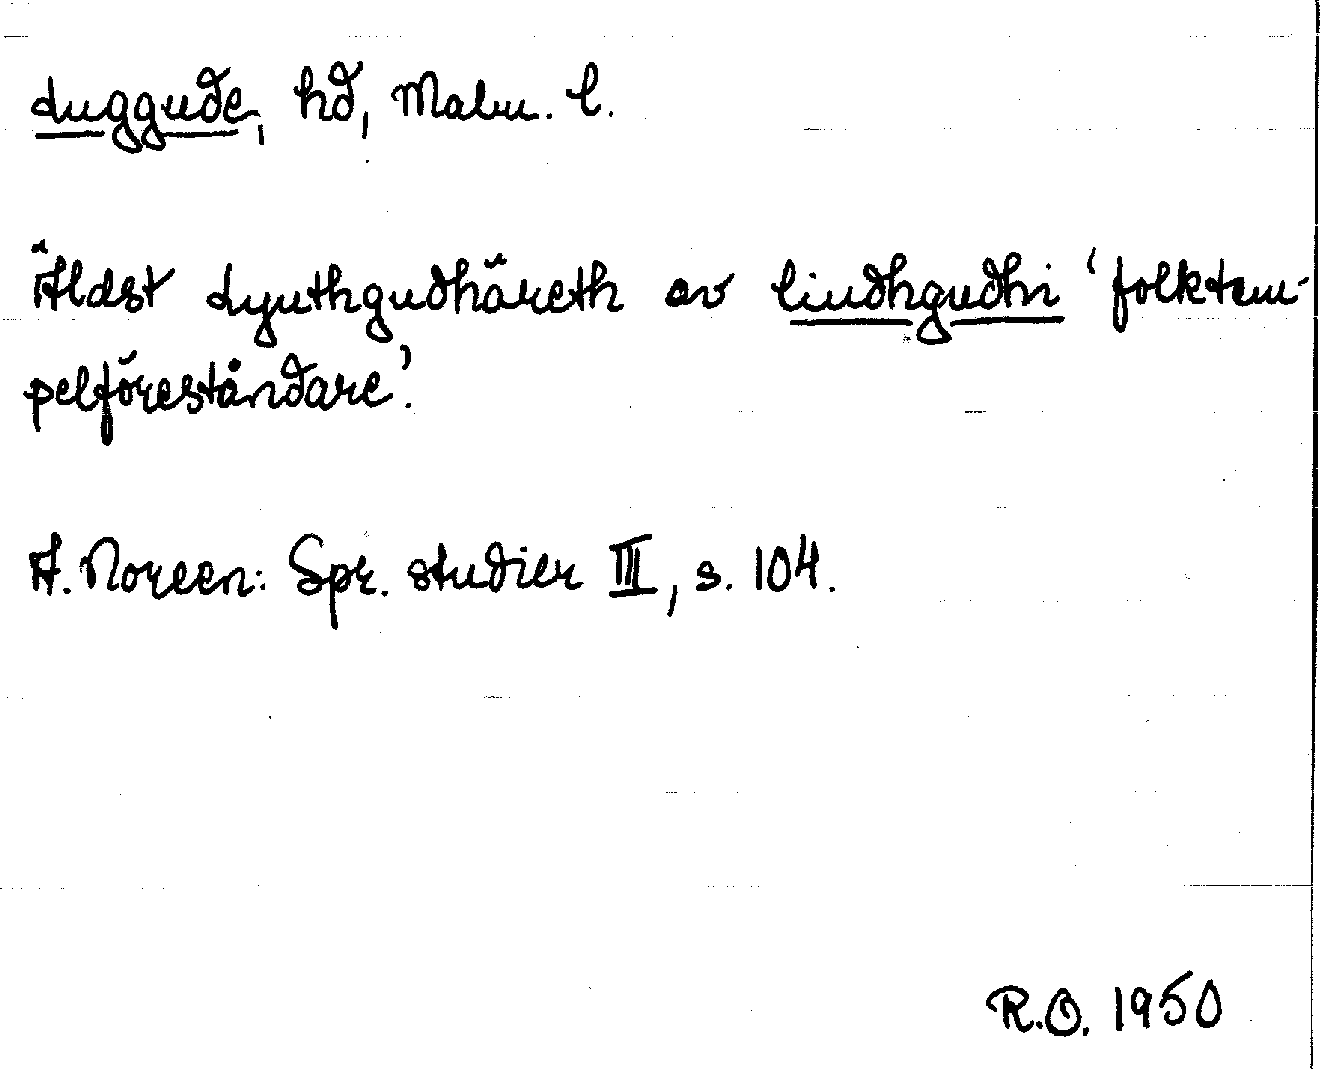 Luggude, hd, Malm. l.
Äldst Lyuthgudhäreth av liudhgudhi 'folktem-
pelföreståndare'.
A. Noreen: Spr. studier III, s. 104.
R.O. 1950